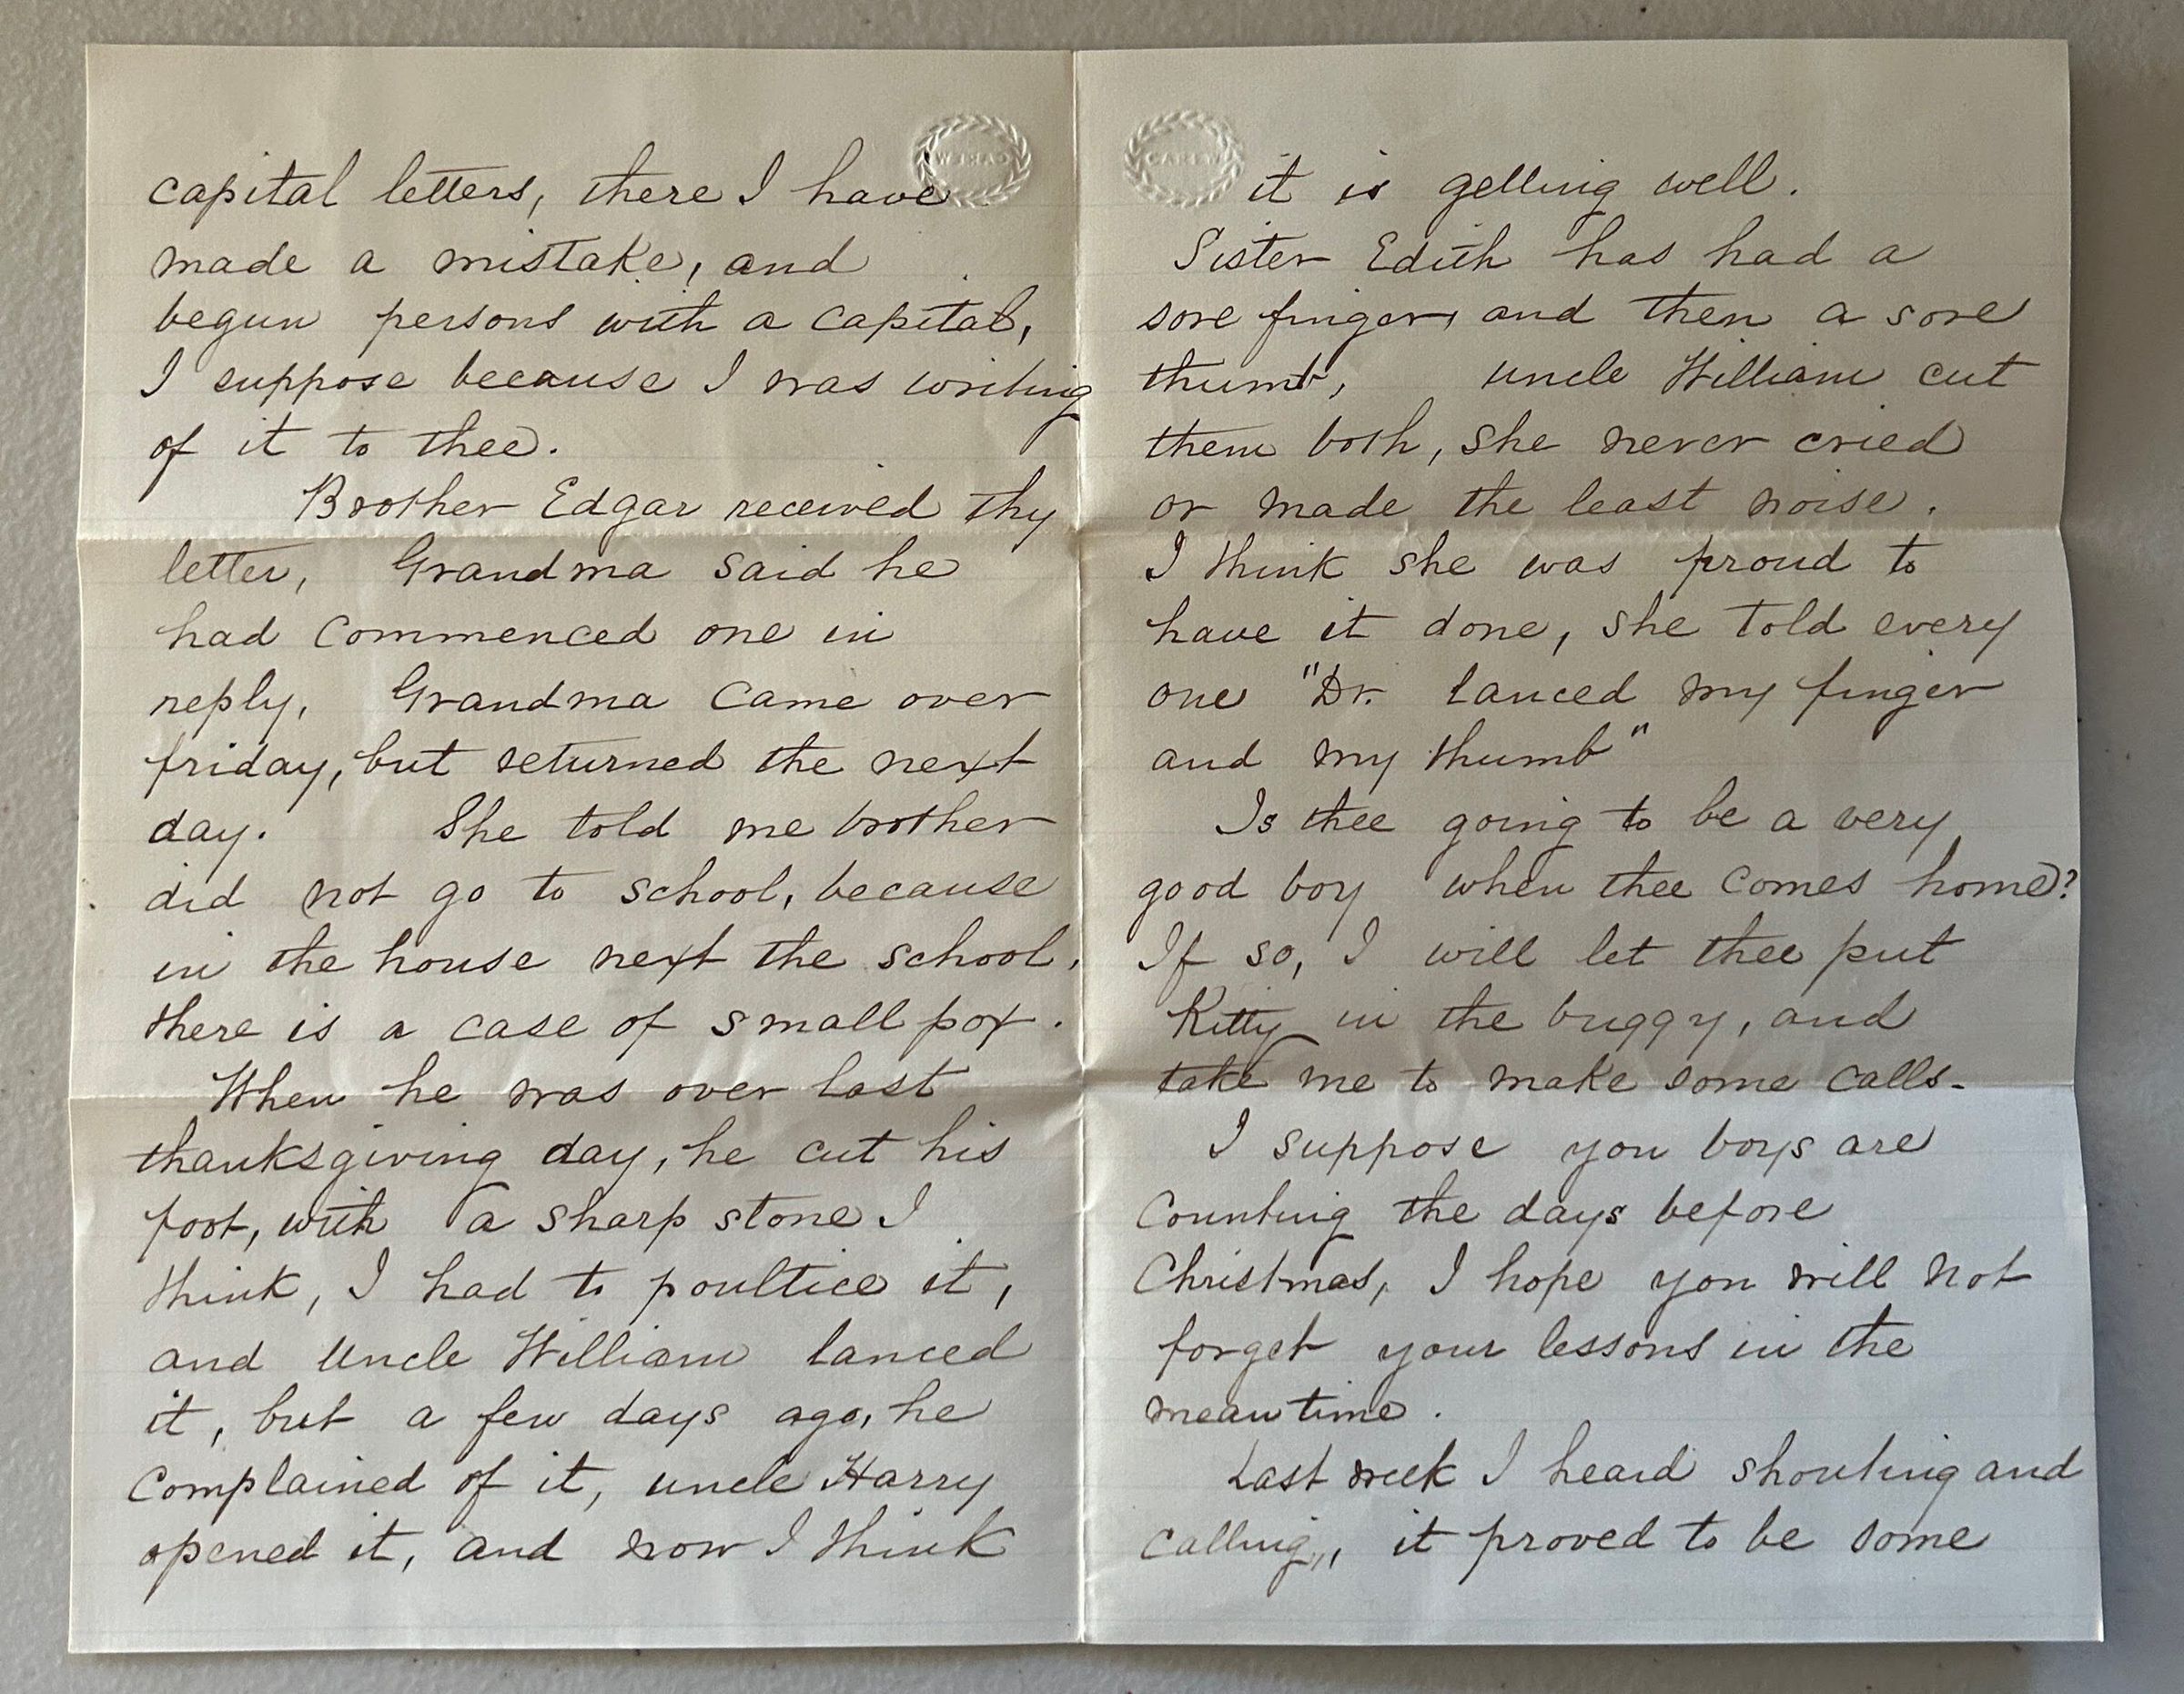 capital letters, there I have
made a mistake, and
begun persons with a capital,
I suppose because I was writing
of it to thee.
Brother Edgar received thy
letter, Grandma said he
had commenced one in
reply, Grandma came over
friday, but returned the next
day. She told me brother
did not go to school, because
in the house next the school,
there is a case of small pox.
When he was over last
thanksgiving day, he cut his
foot, with a sharp stone I
think, I had to poultice it,
and Uncle William lanced
it, but a few days ago, he
complained of it, uncle Harry
opened it, and now I think
CAREW
it is getting well.
Sister Edith has had a
sore finger, and then a sore
thumb, uncle William cut
them both, she never cried
or made the least noise.
I think she was proud to
have it done, she told every
one "Dr. lanced my finger
and my thumb"
Is thee going to be a very
good boy when thee comes home?
If so, I will let thee put
Kitty in the buggy, and
take me to make some calls.
I suppose you boys are
counting the days before
Christmas, I hope you will not
forget your lessons in the
meantime.
Last week I heard shouting and
calling,, it proved to be some